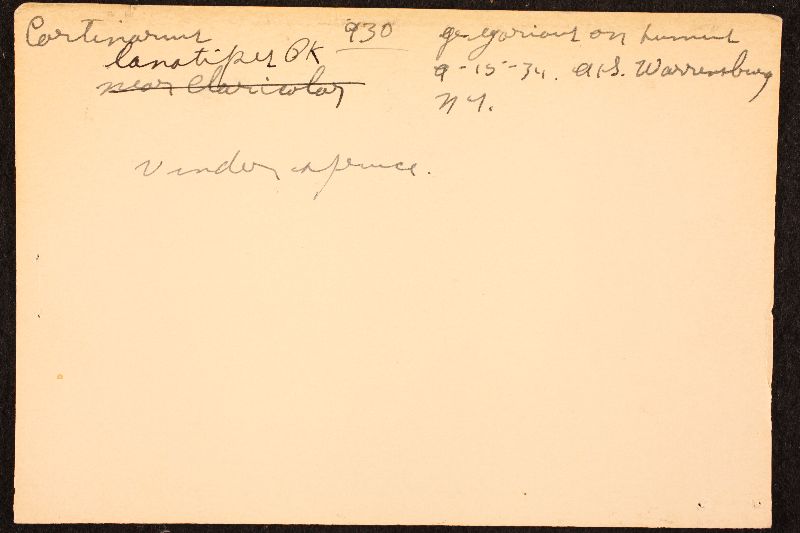 Cortinarius 930 gregarious on humus
lanatipes OK 9-15-34. AHS. Warrensburg
near claricolor N Y.
under spruce.